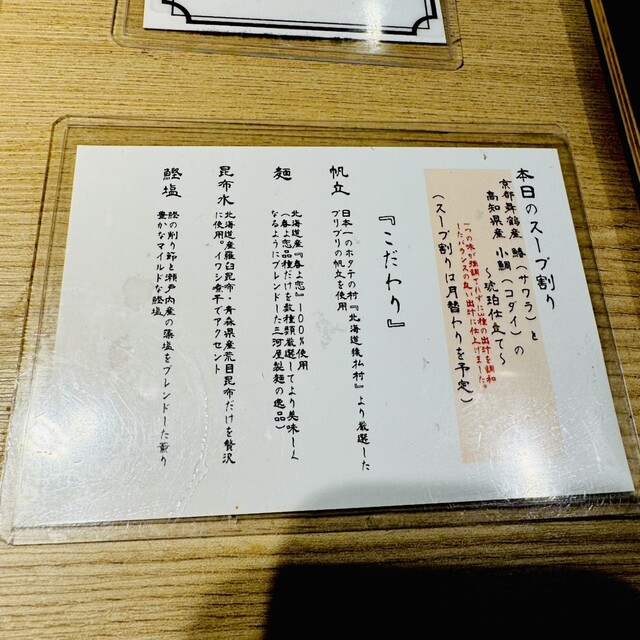 本日のスープ割り
京都舞鶴産 鰆（サワラ）と
高知県産 小鯛（コダイ）の
琥珀仕立て～
一つの味が強調されずに山種の出汁を調和
したバランスの良い出汁に仕上げました。
（スープ割りは月替わりを予定）
『こだわり』
帆立
日本一のホタテの村『北海道猿払村』より厳選した
プリプリの帆立を使用
麺
北海道産『春よ恋』100%使用
（春よ恋品種だけを数種類厳選してより美味しく
なるようにブレンドした三河屋製麺の逸品）
昆布水
北海道産羅臼昆布・青森県産荒目昆布だけを贅沢
に使用。イワシ煮干でアクセント
鰹塩
鰹の削り節と瀬戸内産の藻塩をブレンドした薫り
豊かなマイルドな鰹塩